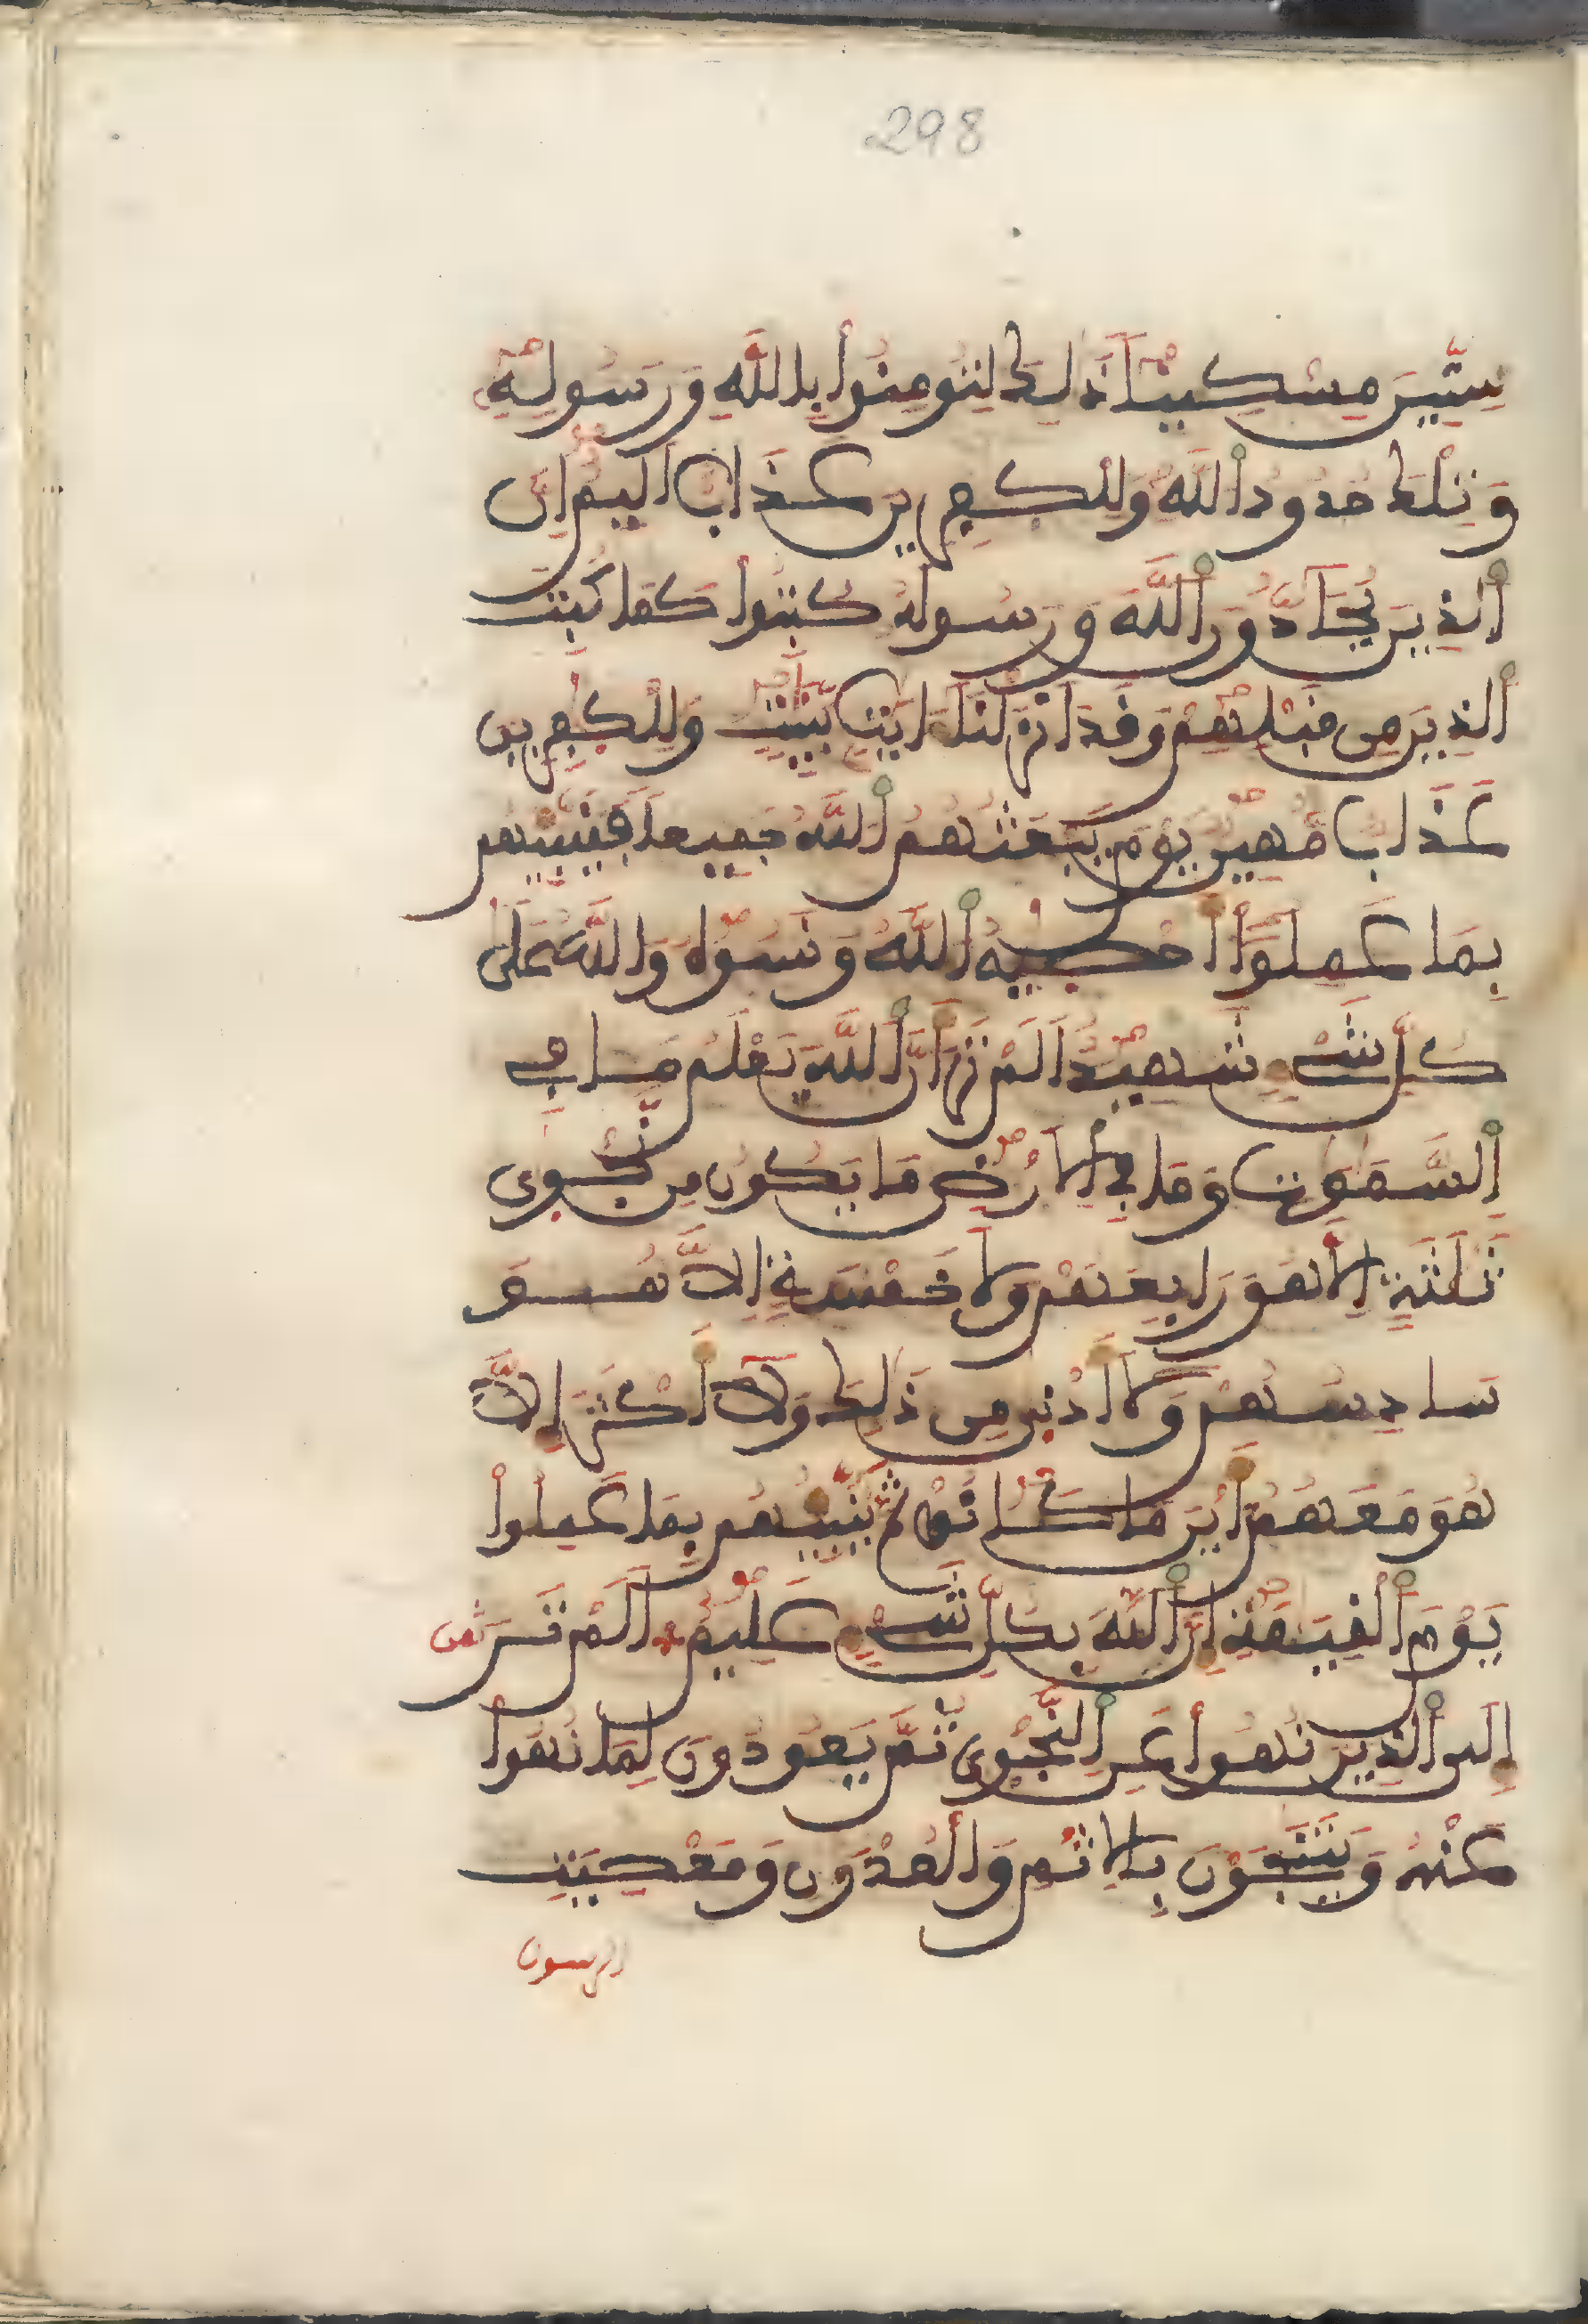 298
سِتِّينَ مِسْكِينًا ذَٰلِكَ لِتُومِنُوا۟ بِاللَّهِ وَرَسُولِهِ
وَتِلْكَ حُدُودُ اُللَّهِ وَلِلْكٰفِرِينَ عَذَابٌ اَلِيمٌ اِنَّ
اَلذِينَ يُحَآدُّونَ اَللَّهَ وَرَسُولَهُ كُبِتُوا۟ كَمَا كُبِتَ
اَلذِينَ مِن قَبْلِهِمْ وَقَدَ اَنزَلْنَآ ءَايَٰتٍ بَيِّنَٰتٍ وَلِلْكٰفِرِينَ
عَذَابٌ مُّهِينٌ يَوْمَ يَبْعَثُهُمُ اُللَّهُ جَمِيعًا فَيُنَبِّئُهُم
بِمَا عَمِلُوٓا۟ أَحْصَيٰهُ اُللَّهُ وَنَسُوهُ وَاللَّهُ عَلَىٰ
كُلِّ شَىْءٍ شَهِيدٌ اَلَمْ تَرَ أَنَّ اَللَّهَ يَعْلَمُ مَا فِى
اِلسَّمَٰوَٰتِ وَمَا فِى اِلَارْضِ مَا يَكُونُ مِن نَّجْوَىٰ
ثَلَٰثَةٍ اِلَّا هُوَ رَابِعُهُمْ وَلَا خَمْسَةٍ اِلَّا هُوَ
سَادِسُهُمْ وَلَآ أَدْنَىٰ مِن ذَٰلِكَ وَلَآ أَكْثَرَ إِلَّا
هُوَ مَعَهُمُۥٓ أَيْنَ مَا كَانُوا۟ ثُمَّ يُنَبِّئُهُم بِمَا عَمِلُوا۟
يَوْمَ اَلْقِيَٰمَةِ إِنَّ اَللَّهَ بِكُلِّ شَىْءٍ عَلِيمٌ اَلَمْ تَرَ ثمن
إِلَى اَلذِينَ نُهُوا۟ عَنِ اِلنَّجْوَىٰ ثُمَّ يَعُودُونَ لِمَا نُهُوا۟
عَنْهُ وَيَتَنَٰجَوْنَ بِالِاثْمِ وَالْعُدْوَٰنِ وَمَعْصِيَتِ
الرسول